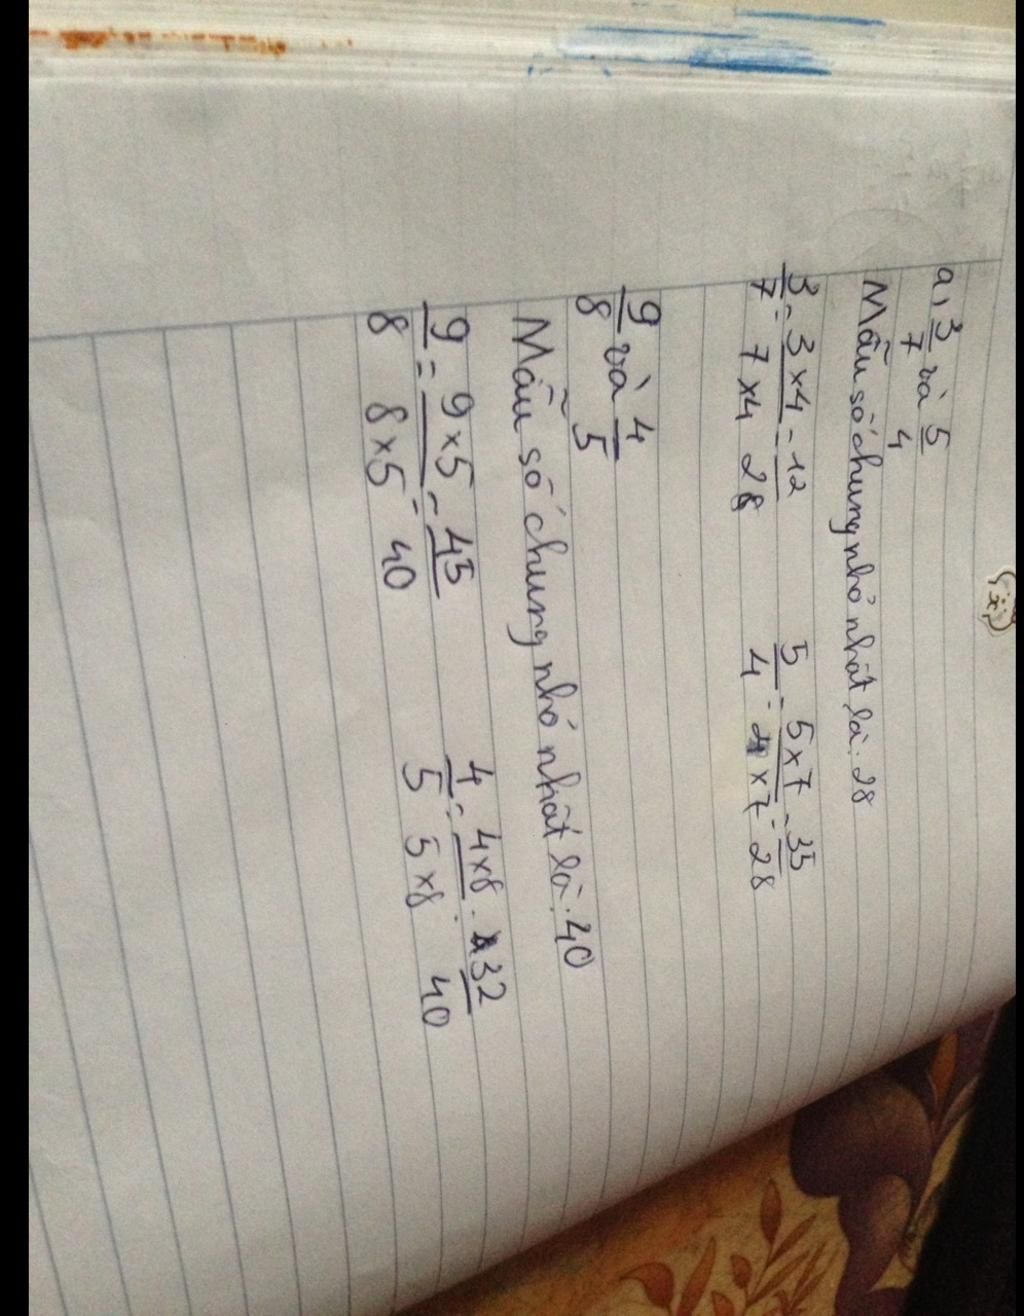 a, 3/7 và 5/4
Mẫu số chung nhỏ nhất là: 28
3/7 = 3×4/7×4 = 12/28 5/4 = 5×7/4×7 = 35/28
9/8 và 4/5
Mẫu số chung nhỏ nhất là: 40
9/8 = 9×5/8×5 = 45/40 4/5 = 4×8/5×8 = 32/40